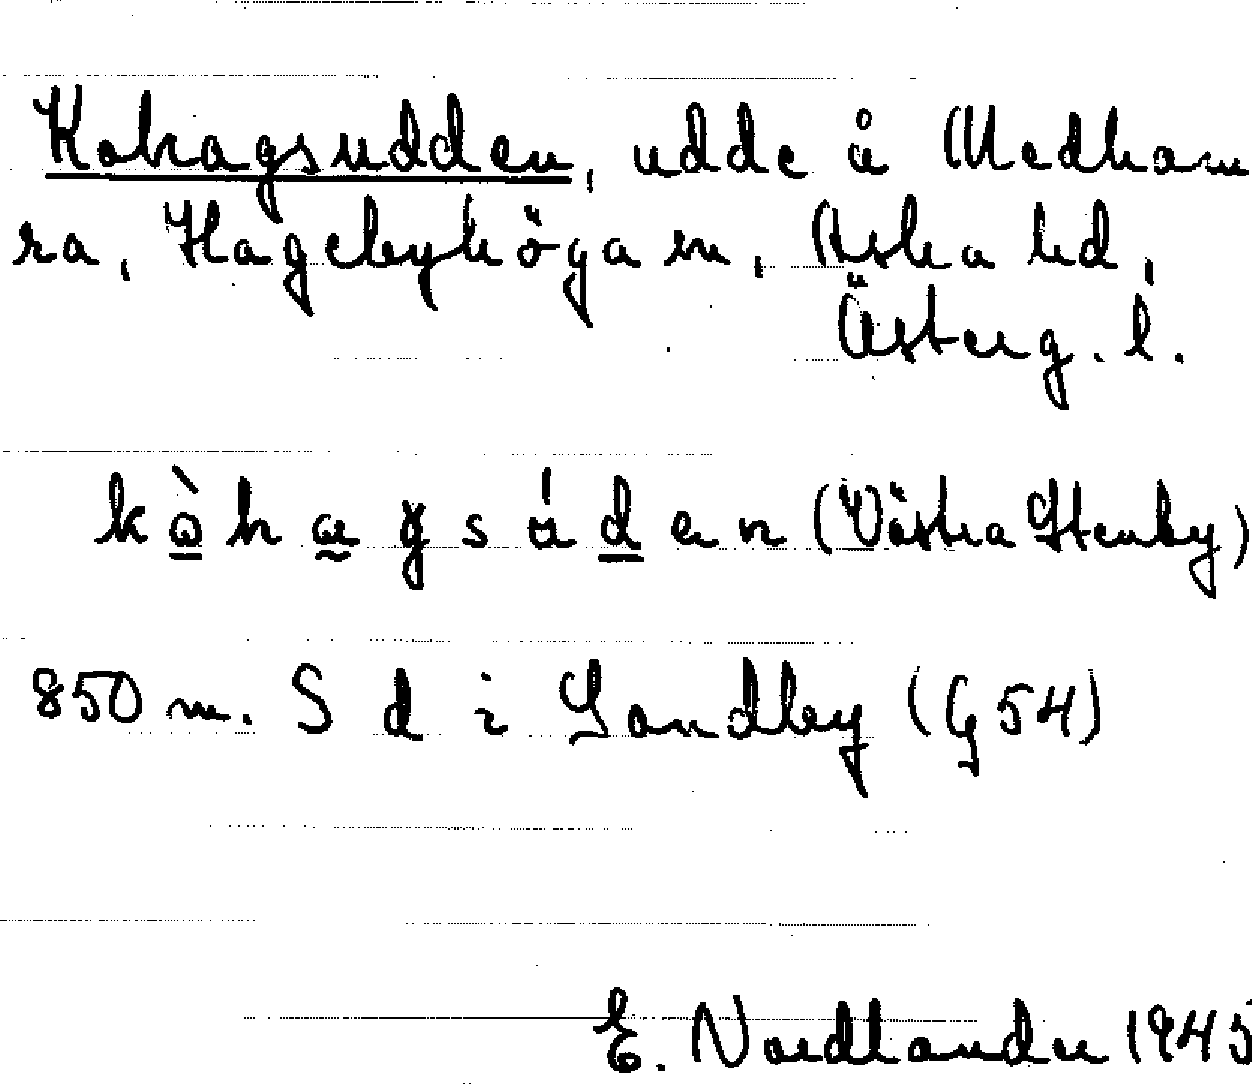 Kohagsudden, udde å Medham
ra, Hagebyhöga sn, Aska hd,
Österg. l.
kòhagsúden (Västra Stenby)
850 m. S d i Sandby (G 54)
E. Nordlander 1945